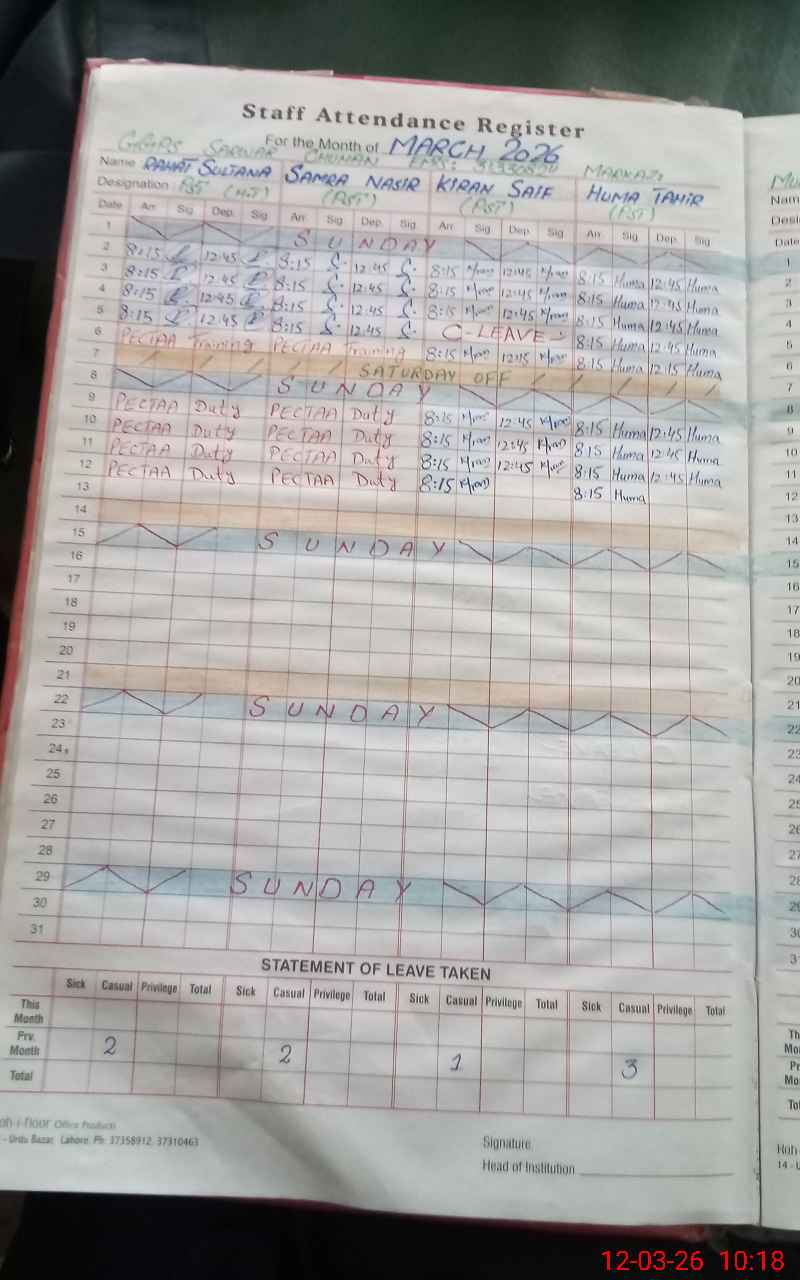 Staff Attendance Register
For the Month of MARCH 2026
GGPS SARWAR CHUHAN EMIS: 31330824 MARKAZ:
Name RAHAT SULTANA SAMRA NASIR KIRAN SAIF HUMA TAHIR
Designation PST (H.T) (PST) (PST) (PST)
Date Arr. Sig Dep. Sig Arr. Sig Dep. Sig Arr. Sig Dep. Sig Arr. Sig Dep. Sig
1 SUNDAY
2 8:15 12:45 8:15 12:45 8:15 12:45 8:15 Huma 12:45 Huma
3 8:15 12:45 8:15 12:45 8:15 12:45 8:15 Huma 12:45 Huma
4 8:15 12:45 8:15 12:45 8:15 12:45 8:15 Huma 12:45 Huma
5 8:15 12:45 8:15 12:45 C-LEAVE 8:15 Huma 12:45 Huma
6 PECTAA Training PECTAA Training 8:15 12:15 8:15 Huma 12:15 Huma
7 SATURDAY OFF
8 SUNDAY
9 PECTAA Duty PECTAA Duty 8:15 12:45 8:15 Huma 12:45 Huma
10 PECTAA Duty PECTAA Duty 8:15 12:45 8:15 Huma 12:45 Huma
11 PECTAA Duty PECTAA Duty 8:15 12:45 8:15 Huma 12:45 Huma
12 PECTAA Duty PECTAA Duty 8:15 8:15 Huma
13
14
15 SUNDAY
16
17
18
19
20
21
22 SUNDAY
23
24
25
26
27
28
29 SUNDAY
30
31
STATEMENT OF LEAVE TAKEN
Sick Casual Privilege Total Sick Casual Privilege Total Sick Casual Privilege Total Sick Casual Privilege Total
This Month
Prv. Month 2 2 1 3
Total
Office Products
- Urdu Bazar, Lahore. Ph: 37358912, 37310463
Signature
Head of Institution
12-03-26 10:18